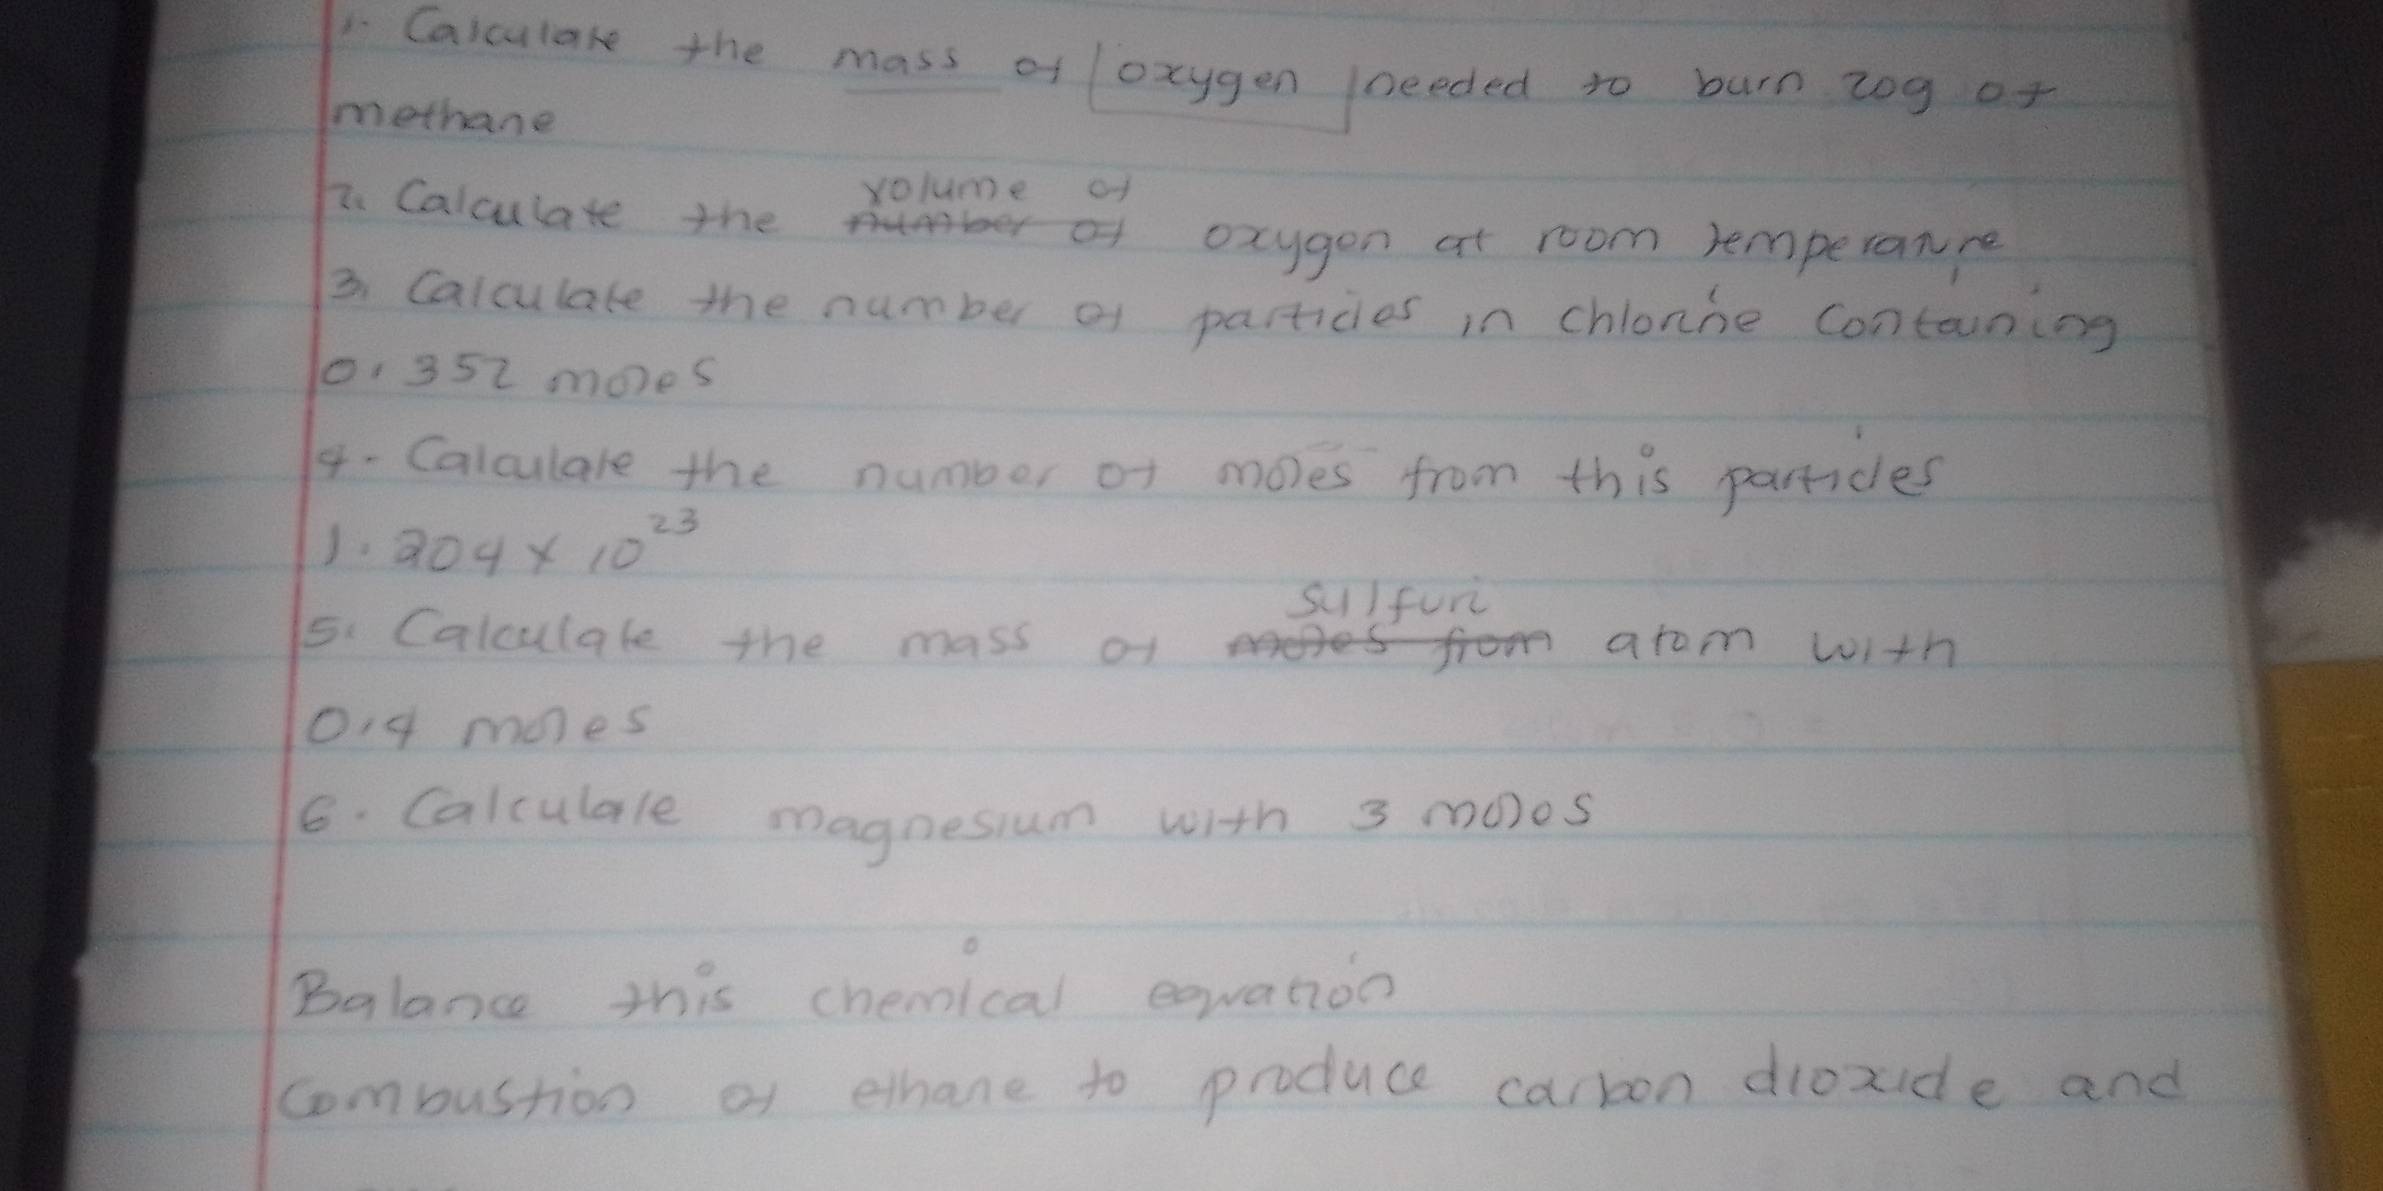 1. Calculate the mass of oxygen needed to burn 20g of
methane
2. Calculate the volume of oxygen at room temperature
3. Calculate the number of particles in chlorine containing
0.352 moles
4. Calculate the number of moles from this particles
1.204 x 10²³
5. Calculate the mass of sulfuri atom with
0.4 moles
6. Calculate magnesium with 3 moles
Balance this chemical equation
Combustion of ethane to produce carbon dioxide and